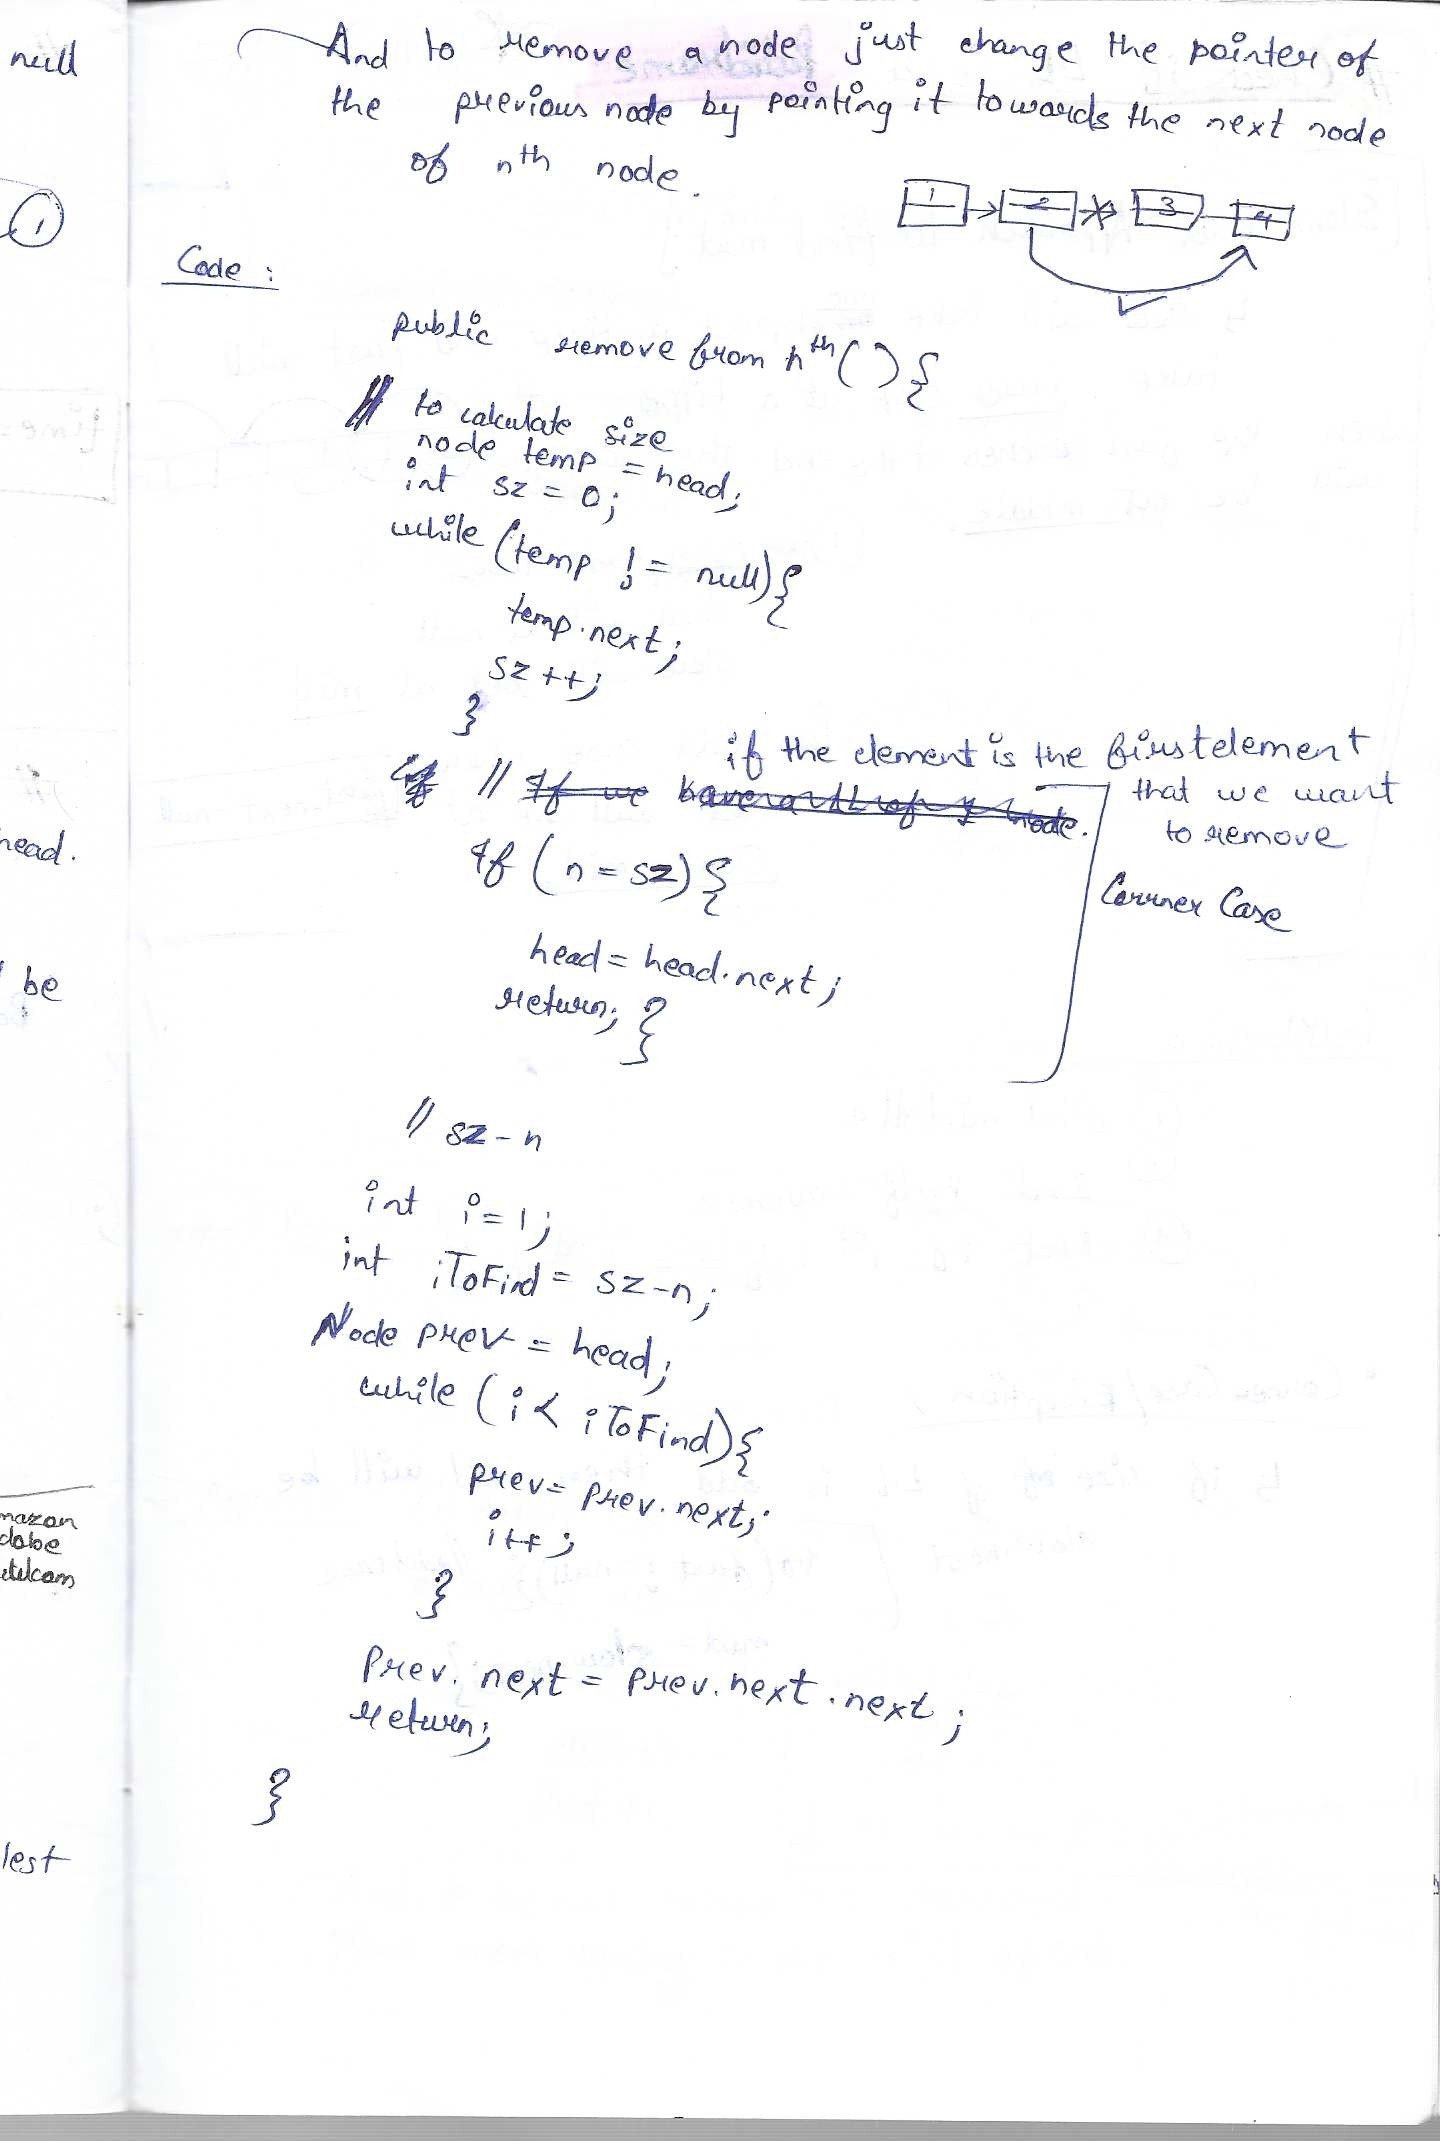 null
And to remove a node just change the pointer of
the previous node by pointing it towards the next node
of nth node.
1 2 3 4
1
Code :
public remove from nth() {
// to calculate size
node temp = head;
int sz = 0;
while (temp != null) {
temp.next;
sz ++;
}
if the element is the first element
// If we
node.
that we want
to remove
head.
If (n = sz) {
Corner Case
head = head.next;
be
return; }
// sz - n
int i = 1;
int iToFind = sz-n;
Node prev = head;
while (i < iToFind) {
prev = prev.next;
mazon
i++;
dobe
}
Prev. next = prev.next.next;
return;
}
lest